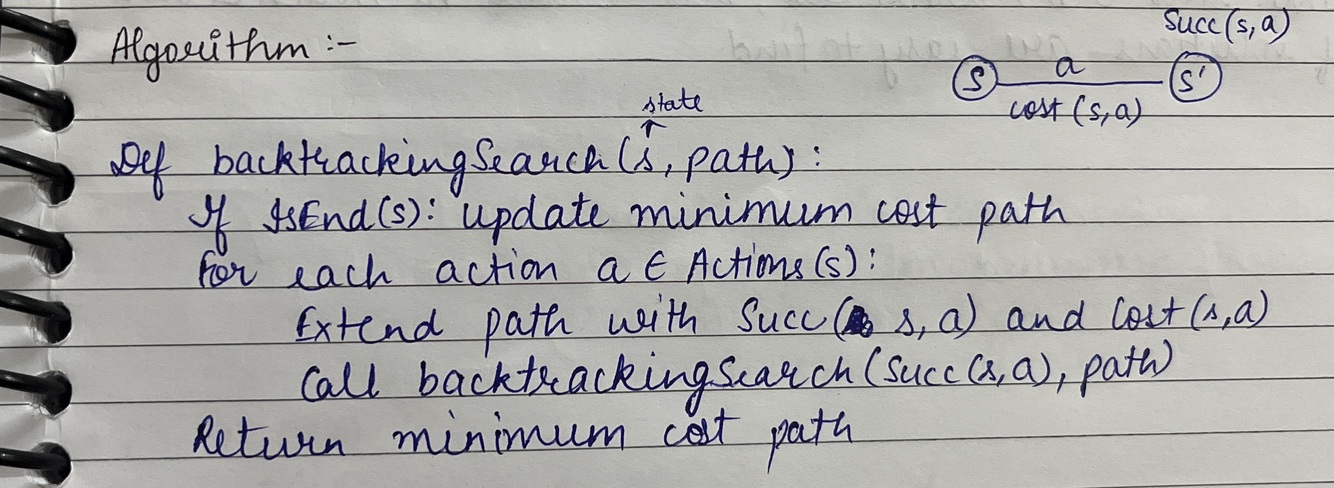 Succ(s,a)
Algorithm :-
S a S'
cost (s,a)
state
Def backtrackingSearch(s, path):
If IsEnd(s): update minimum cost path
For each action a ∈ Actions(s):
Extend path with Succ( s, a) and Cost(s,a)
Call backtrackingSearch(Succ(s,a), path)
Return minimum cost path